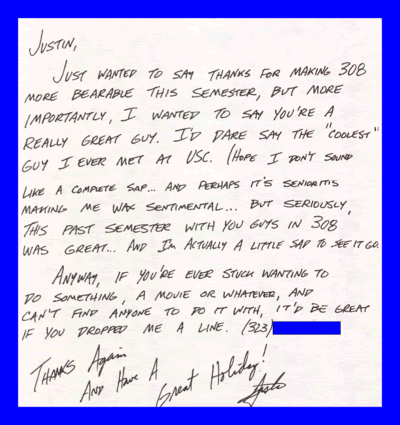 JUSTIN,
JUST WANTED TO SAY THANKS FOR MAKING 308
MORE BEARABLE THIS SEMESTER, BUT MORE
IMPORTANTLY, I WANTED TO SAY YOU'RE A
REALLY GREAT GUY. I'D DARE SAY THE "COOLEST"
GUY I EVER MET AT USC. (HOPE I DON'T SOUND
LIKE A COMPLETE SAP... AND PERHAPS IT'S SENIORITIS
MAKING ME WAX SENTIMENTAL... BUT SERIOUSLY,
THIS PAST SEMESTER WITH YOU GUYS IN 308
WAS GREAT... AND I'M ACTUALLY A LITTLE SAD TO SEE IT GO.
ANYWAY, IF YOU'RE EVER STUCK WANTING TO
DO SOMETHING, A MOVIE OR WHATEVER, AND
CAN'T FIND ANYONE TO DO IT WITH, IT'D BE GREAT
IF YOU DROPPED ME A LINE. (323)
THANKS Again
AND HAVE A
Great Holiday!